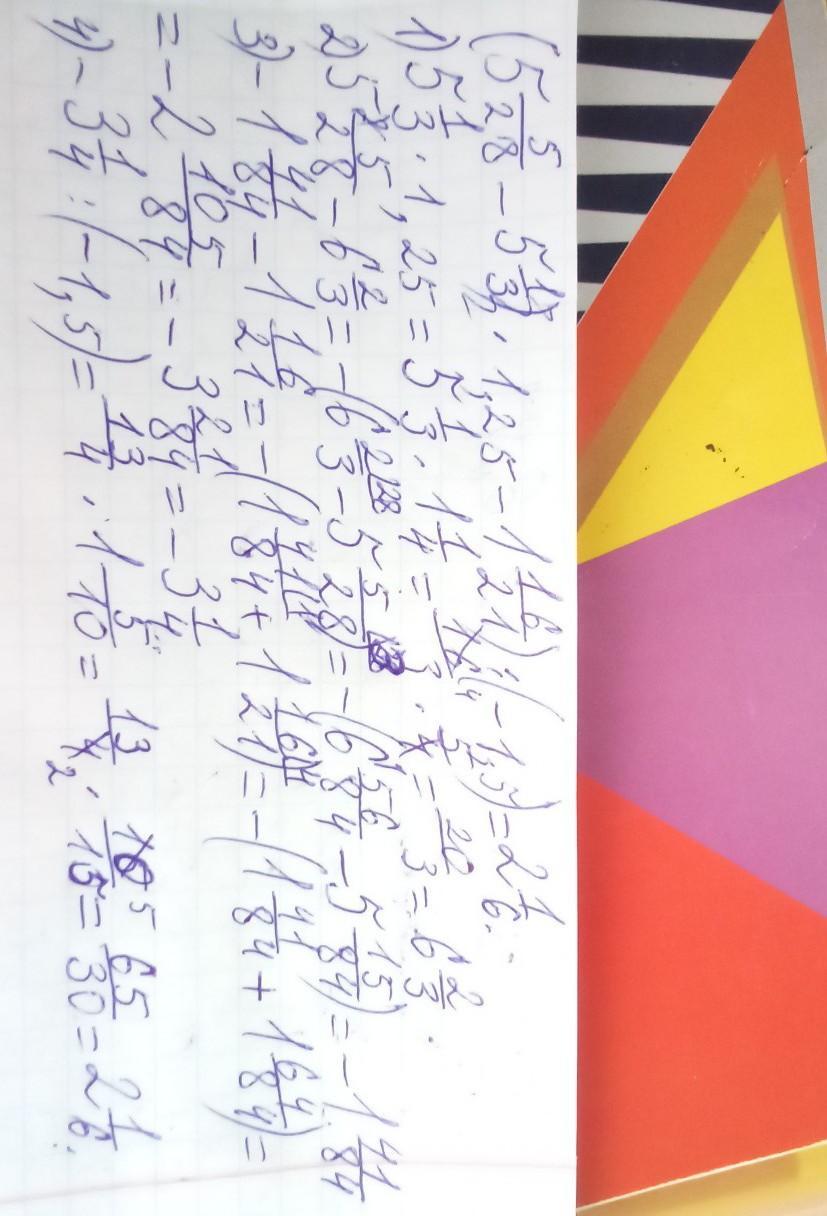 (5 5/28 - 5 1/3 · 1,25 - 1 16/21) : (-1,5) = 2 1/6.
1) 5 1/3 · 1,25 = 5 1/3 · 1 1/4 = 16/3 · 5/4 = 20/3 = 6 2/3.
2) 5 5/28 - 6 2/3 = -(6 2/3 - 5 5/28) = -(6 56/84 - 5 15/84) = -1 41/84
3) -1 41/84 - 1 16/21 = -(1 41/84 + 1 16/21) = -(1 41/84 + 1 64/84) =
= -2 105/84 = -3 21/84 = -3 1/4
4) -3 1/4 : (-1,5) = 13/4 · 1 5/10 = 13/4 · 10/15 = 65/30 = 2 1/6.